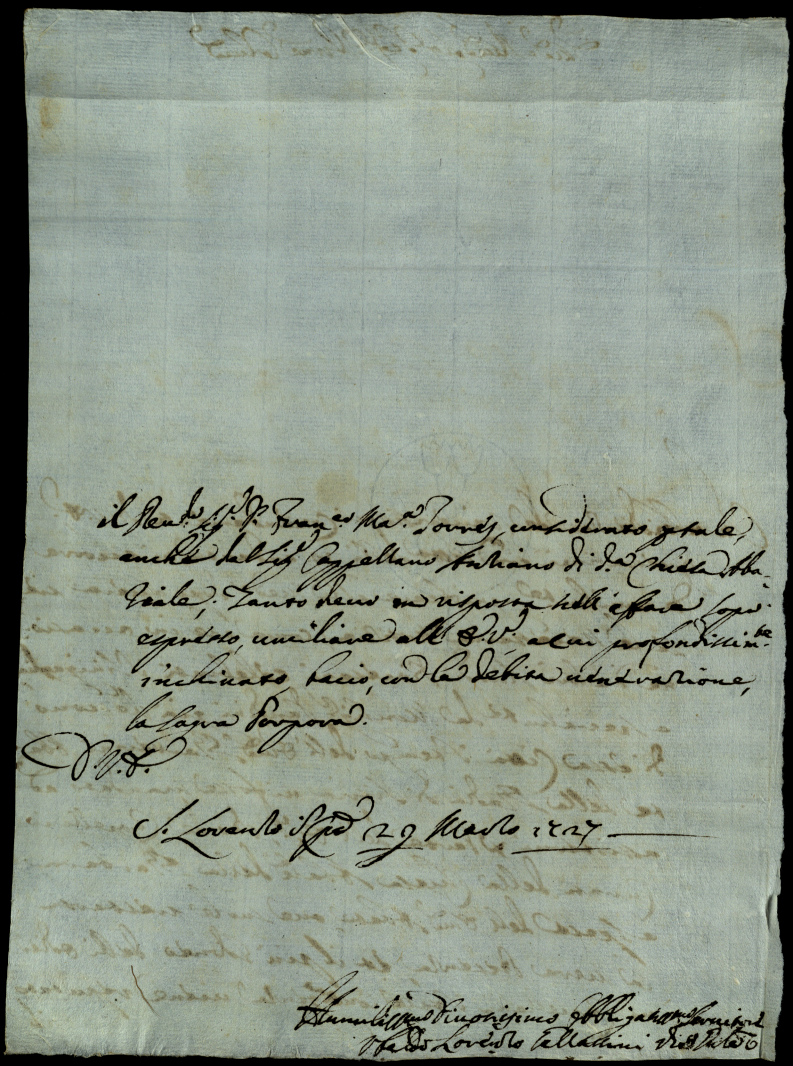 il Reu.do Sig.r D. Fran.co Ma.a Torres, considerato p tale,
anche dal Sig.r Cappellano Italiano di d.a Chiesa Abba-
ziale; Tanto deuo in risposta nell' affare sopra
espresso, umiliare all' E. V. a cui profondissim.te
inchinato, bacio, con la debita uenerazione,
la Sagra Porpora.
D. V. E.
S. Lorenzo 29 Marzo 1727
Humilissimo Diuotissimo Obbligatissimo Seruitore
Lorenzo Palladini